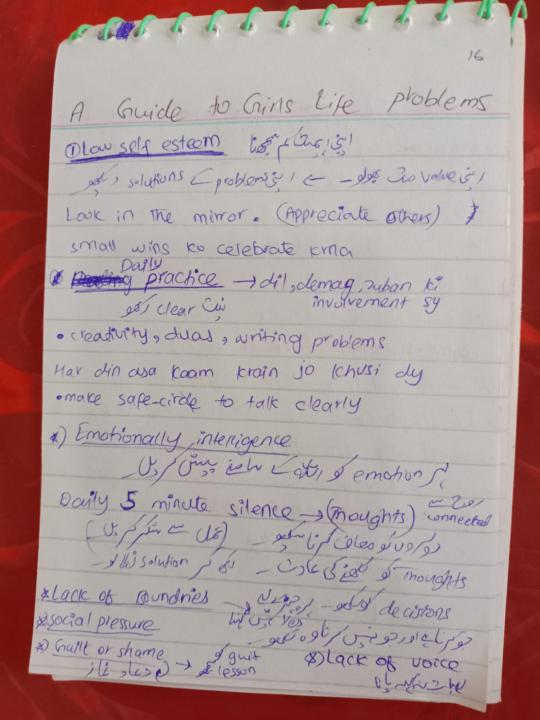 16
A Guide to Girls Life problems
① Low self esteem اپنی اہمیت کم سمجھنا
اپنی value مت بھولو۔ ← اپنی problems کے solutions دیکھو
Look in the mirror. (Appreciate others)
small wins ko celebrate krna
Daily
practice → dil, demag, zuban ki
involvement sy
نیت clear رکھو
• creativity, duas, writing problems
Har din asa kaam krain jo khusi dy
• make safe-circle to talk clearly
*) Emotionally intelligence
ہر emotion کو اللہ کے سامنے پیش کر دیں
Daily 5 minute silence → (Thoughts) روح سے connected
دوسروں کو معاف کرنا سیکھو۔ (عمل سے شکر کریں)
thoughts کو لکھنے کی عادت۔ لکھ کر solution نکالو
* Lack of boundries → decisions
* Social pressure
جو کرنا ہے اور جو نہیں کرنا وہ لکھو۔
*) Guilt or shame → کو guit
lesson
*) Lack of voice